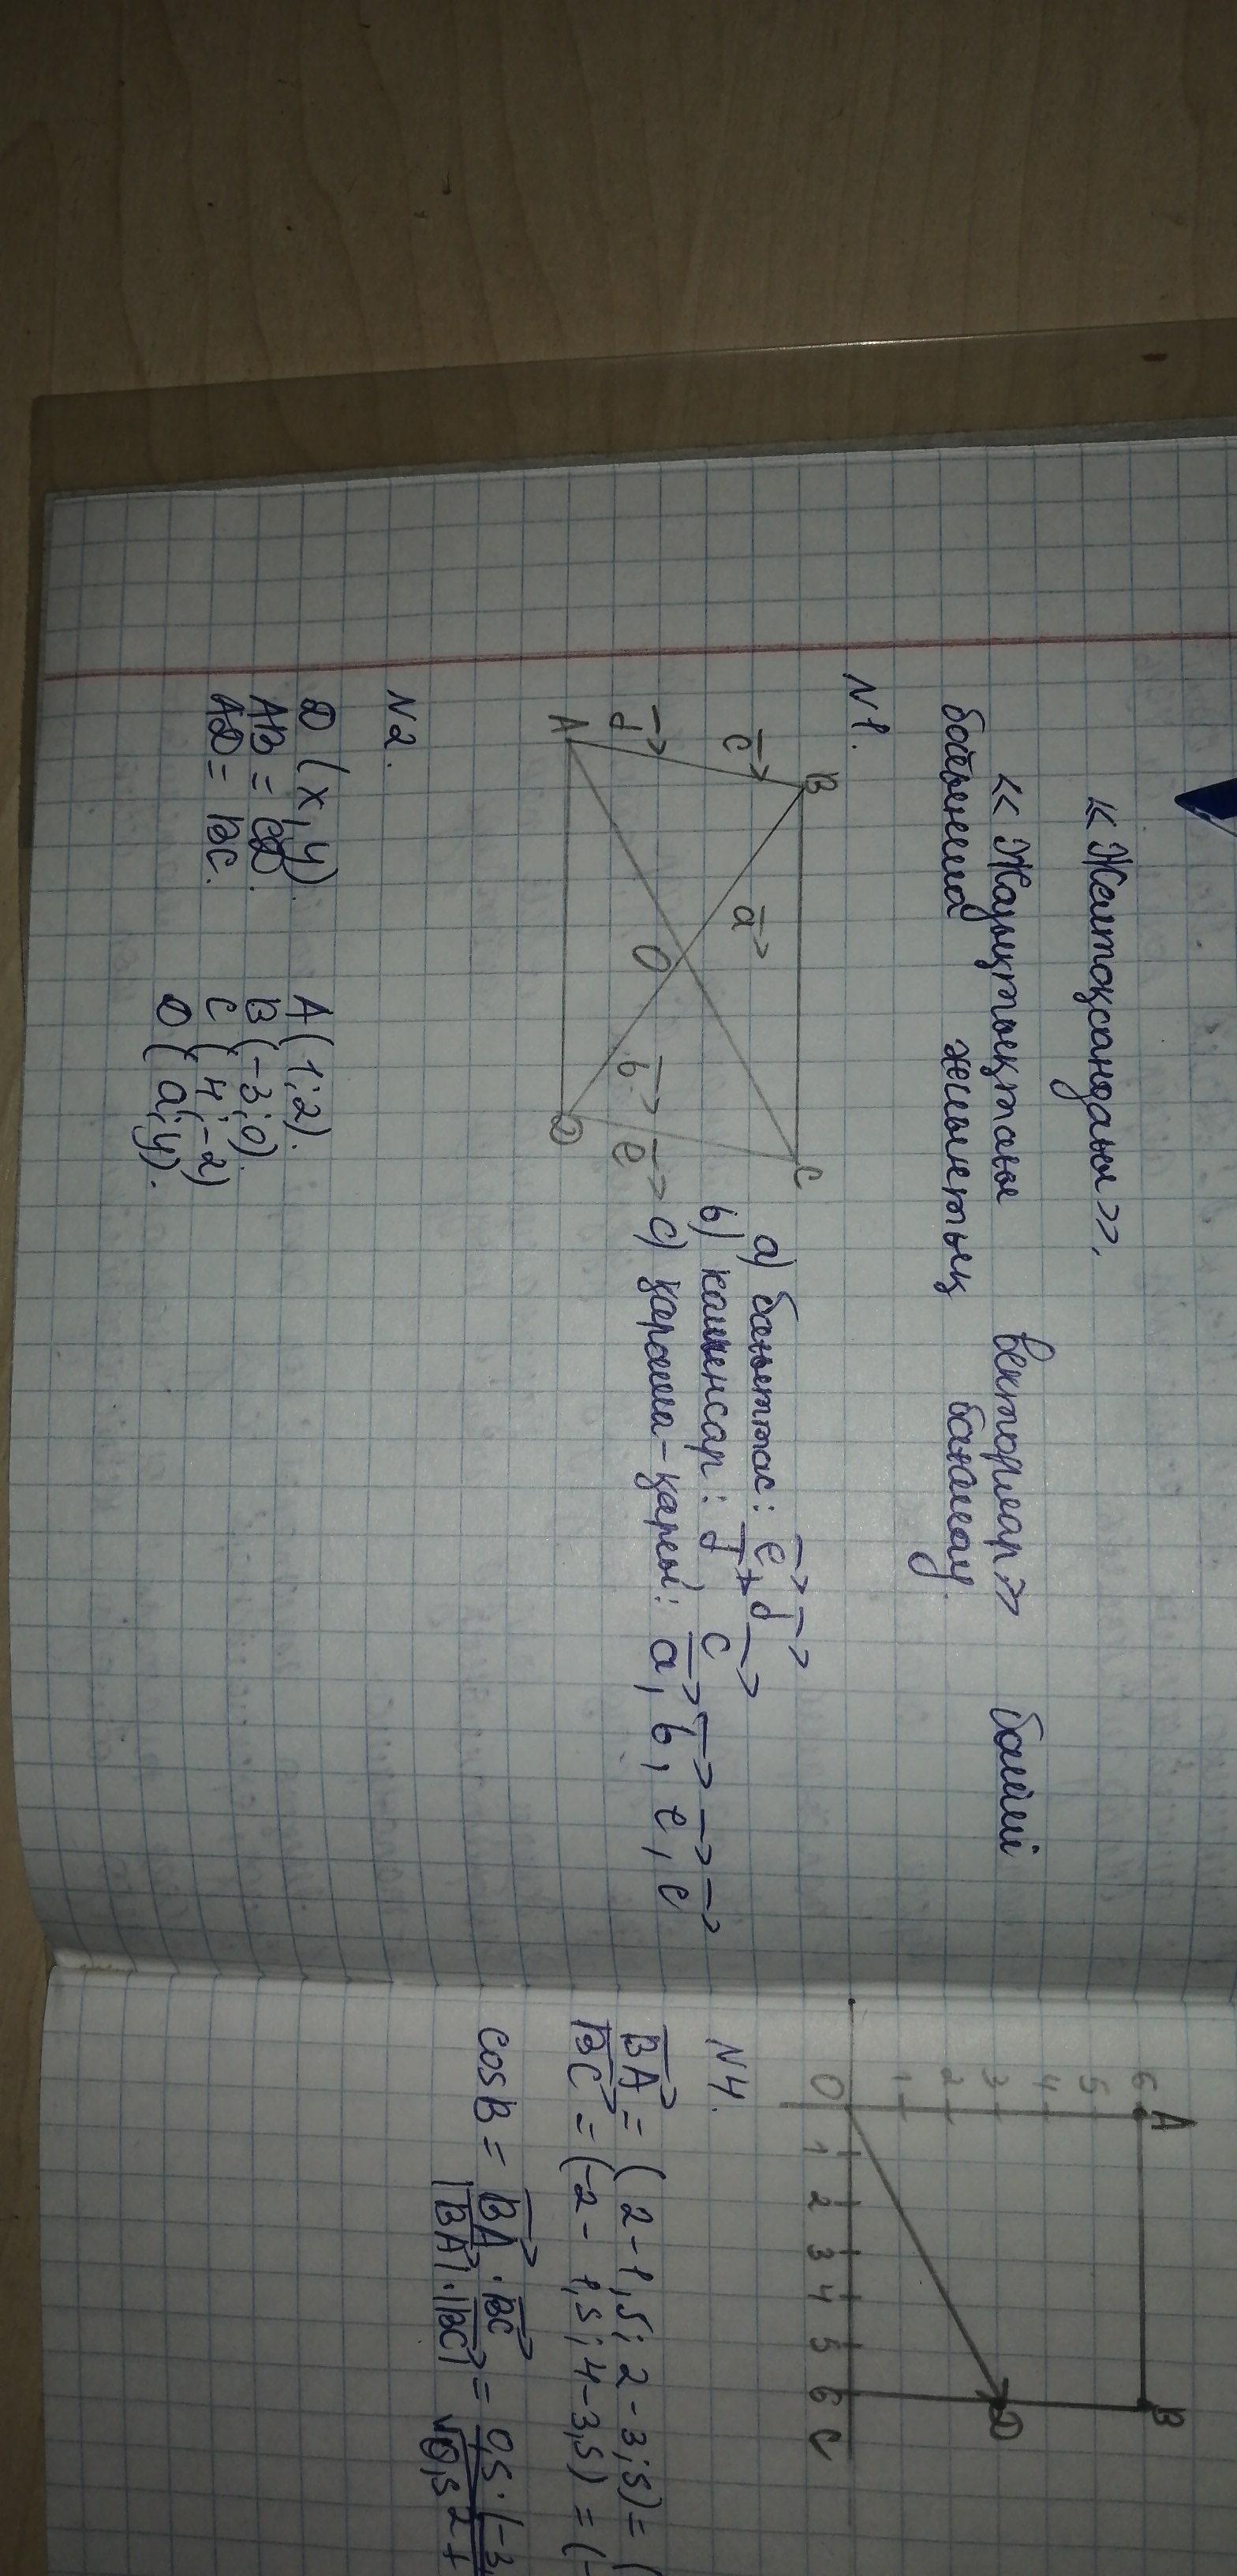 «Желтоқсандағы».
«Жазықтықтағы векторлар» бөлімі
бойынша жиынтық бағалау.
N1.
B
C
A
D
O
c⃗
d⃗
a⃗
b⃗
e⃗
a) бағыттас: e⃗, d⃗
b) коллинеар: d⃗, c⃗
c) қарама-қарсы: a⃗, b⃗, e⃗, c⃗
N2.
D (x, y).
AB = CD.
AD = BC.
A (1; 2).
B (-3; 0).
C (4; -2)
D (a; y).
A
B
6
5
4
3
2
1
0
1 2 3 4 5 6 C
D
N4.
BA⃗ = (2 - 1,5; 2 - 3,5) = (
BC⃗ = (-2 - 1,5; 4 - 3,5) = (-
cos B = BA⃗ · BC⃗ / |BA⃗| · |BC⃗| = 0,5 · (-3, / √0,5² +